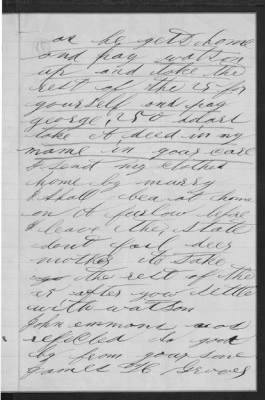 as he gets home
and pay watson
up and take the
rest of the 25 for
yourself and pay
george 250 dolars
take A deed in my
name in your care
I send my clothes
home by murry
I shall bea at home
on A furlow before
I leave the State
dont fail deer
mother to take
the rest of the
25 after you settle
with watson
John emmons was
refused to
by from your sone
James H Groves